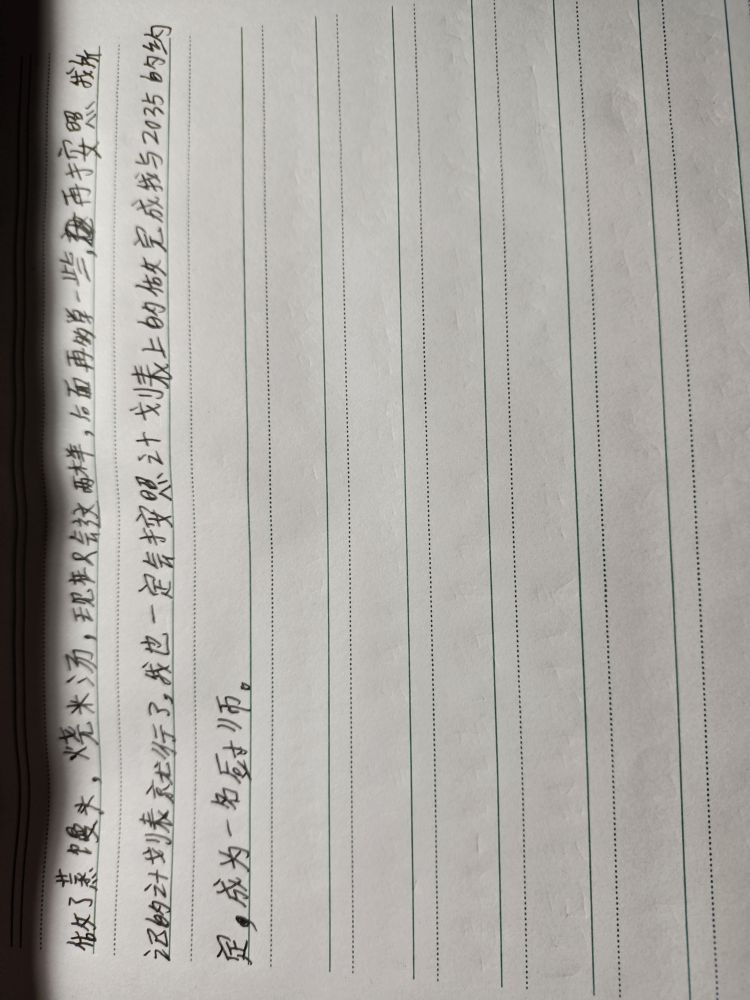 做了蒸馒头，烧米汤，现在只会这两样，后面再学一些，再按照我所
记的计划表就行了，我也一定会按照计划表上的做完成我与2035的约
定，成为一名厨师。